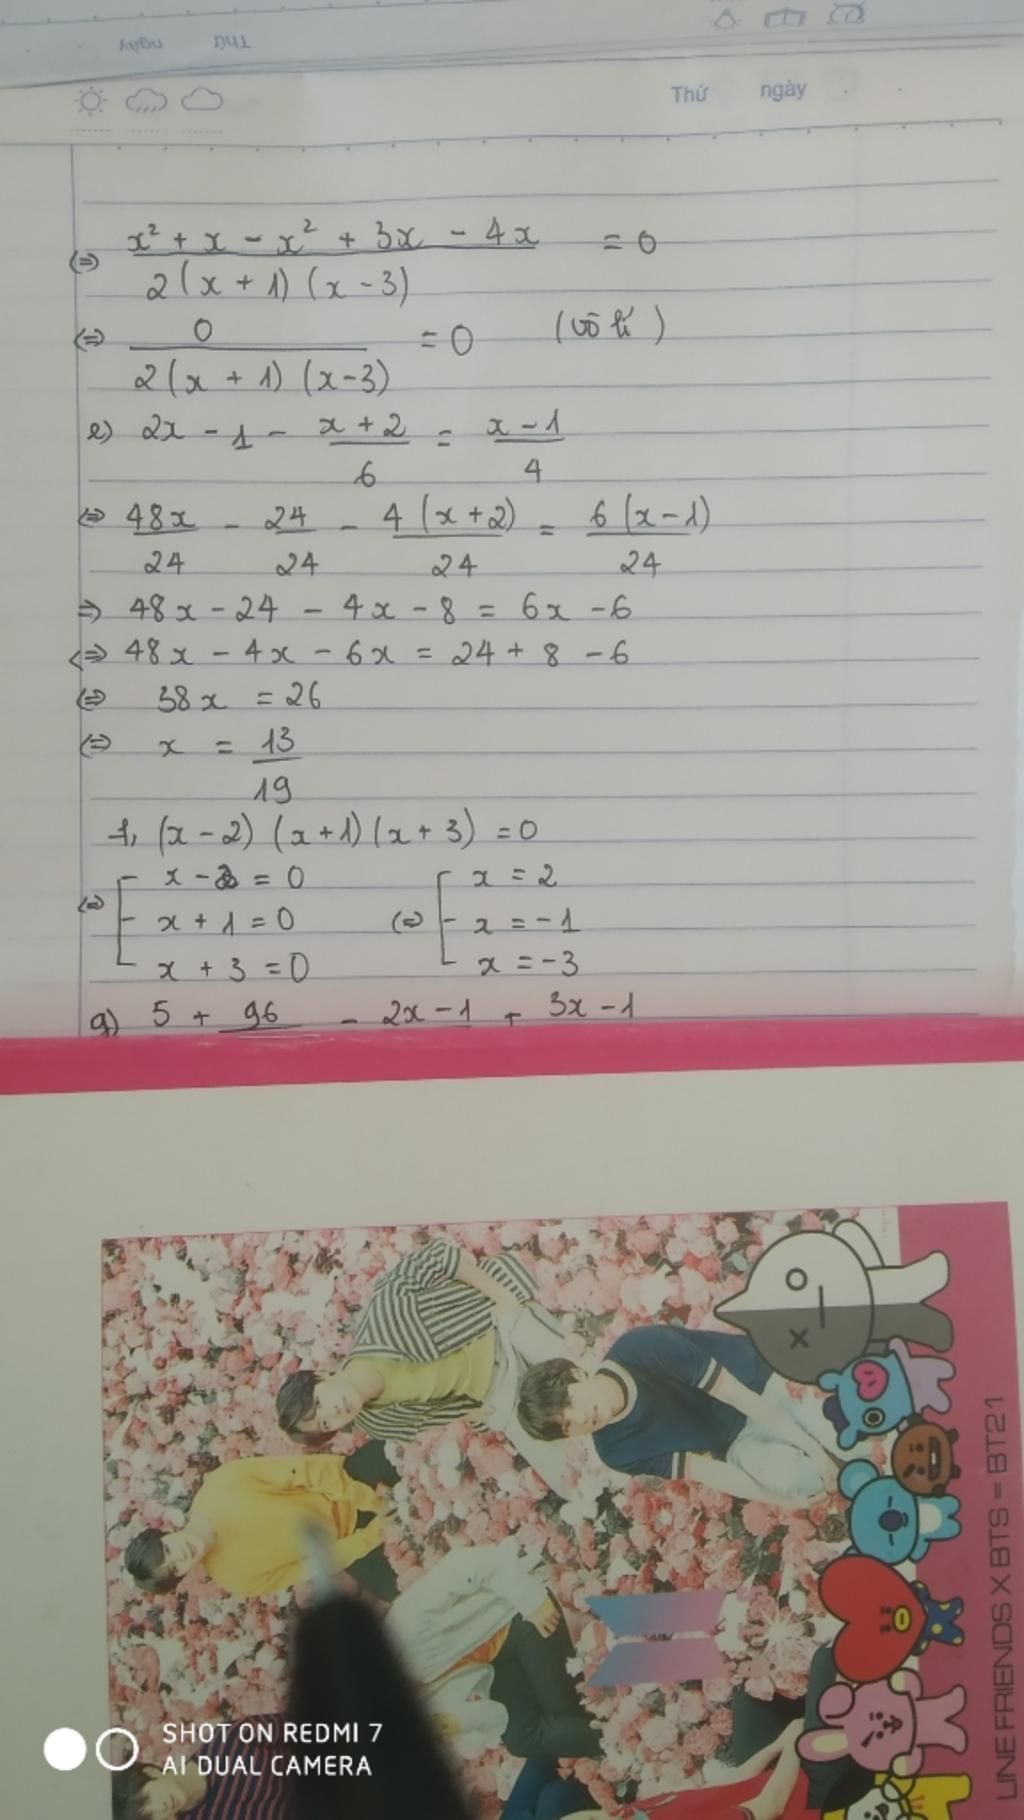 Thứ ngày
Thứ ngày
⇔ (x² + x - x² + 3x - 4x)/(2(x + 1)(x - 3)) = 0
⇔ 0/(2(x + 1)(x-3)) = 0 (vô lí)
e) 2x - 1 - (x + 2)/6 = (x - 1)/4
⇔ 48x/24 - 24/24 - 4(x+2)/24 = 6(x-1)/24
⇒ 48x - 24 - 4x - 8 = 6x - 6
⇔ 48x - 4x - 6x = 24 + 8 - 6
⇔ 38x = 26
⇔ x = 13/19
f, (x - 2)(x + 1)(x + 3) = 0
⇔ [ x - 2 = 0 ⇔ [ x = 2
x + 1 = 0 x = -1
x + 3 = 0 x = -3
g) 5 + 96 - 2x - 1 + 3x - 1
LINE FRIENDS X BTS = BT21
SHOT ON REDMI 7
AI DUAL CAMERA